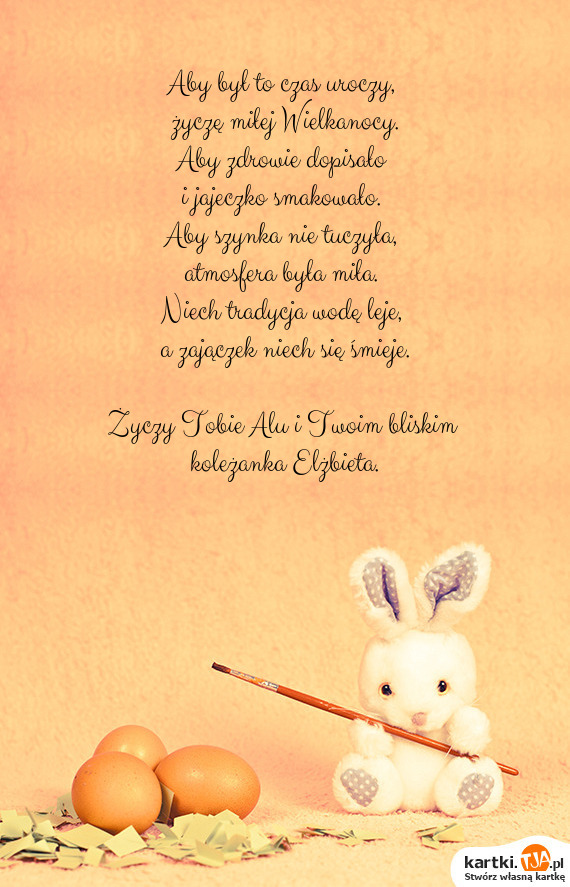 Aby był to czas uroczy,
życzę miłej Wielkanocy.
Aby zdrowie dopisało
i jajeczko smakowało.
Aby szynka nie tuczyła,
atmosfera była miła.
Niech tradycja wodę leje,
a zajączek niech się śmieje.
Życzy Tobie Alu i Twoim bliskim
koleżanka Elżbieta.
kartki.TJA.pl
Stwórz własną kartkę